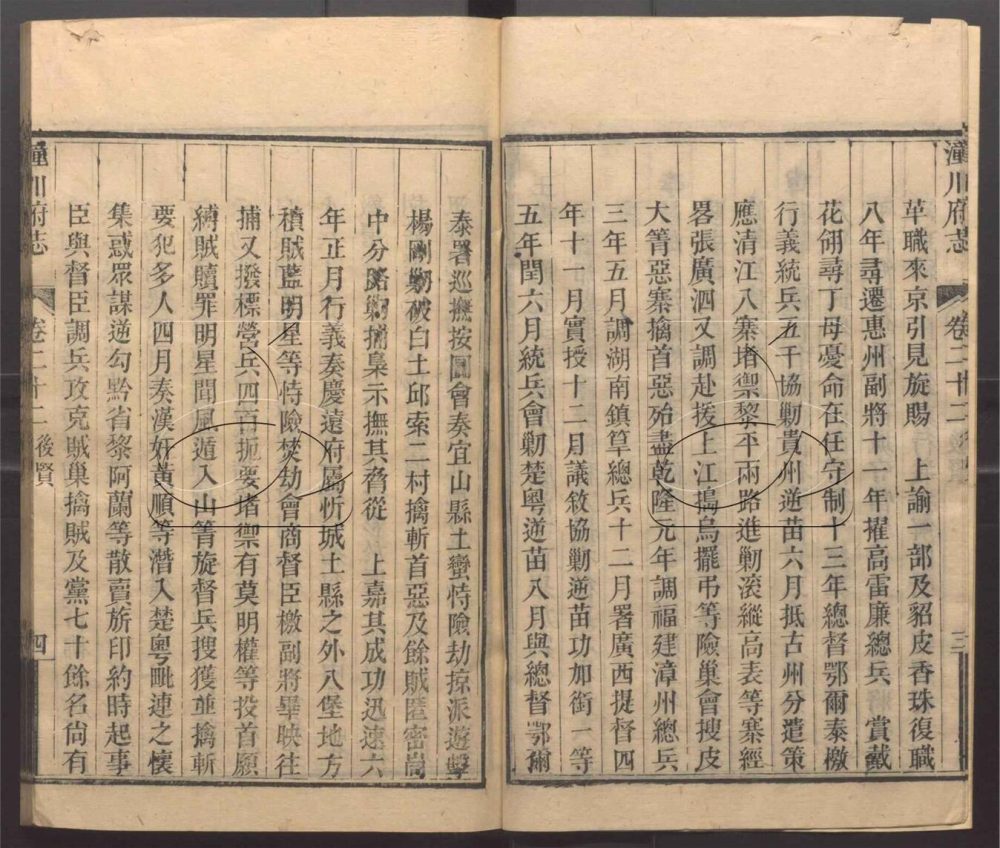 潼川府志
卷二十二
三
革職來京引見旋賜 上諭一部及貂皮香珠復職
八年尋遷惠州副將十一年擢高雷廉總兵 賞戴
花翎尋丁母憂命在任守制十三年總督鄂爾泰檄
行義統兵五千協勦貴州逆苗六月抵古州分遣策
應清江八寨堵禦黎平兩路進勦滾縱高表等寨經
畧張廣泗又調赴援上江搗烏擺弔等險巢會搜皮
大箐惡寨擒首惡殆盡乾隆元年調福建漳州總兵
三年五月調湖南鎮筸總兵十二月署廣西提督四
年十一月實授十二月議敘協勦逆苗功加銜一等
五年閏六月統兵會勦楚粵逆苗八月與總督鄂爾
泰署巡撫按會奏宜山縣土蠻恃險劫掠派遊擊
楊剛勦破白土邱索二村擒斬首惡及餘賊匿密崗
中分路勦捕梟示撫其脅從 上嘉其成功迅速六
年正月行義奏慶遠府屬忻城土縣之外八堡地方
積賊藍明星等恃險焚劫會商督臣檄副將畢映往
捕又撥標營兵四百扼要堵禦有莫明權等投首願
縛賊贖罪明星聞風遁入山箐旋督兵搜獲並擒斬
要犯多人四月奏漢奸黃順等潛入楚粵毗連之懷
集惑眾謀逆勾黔省黎阿蘭等散賣旂印約時起事
臣與督臣調兵攻克賊巢擒賊及黨七十餘名尙有
潼川府志
卷二十二 後賢
四